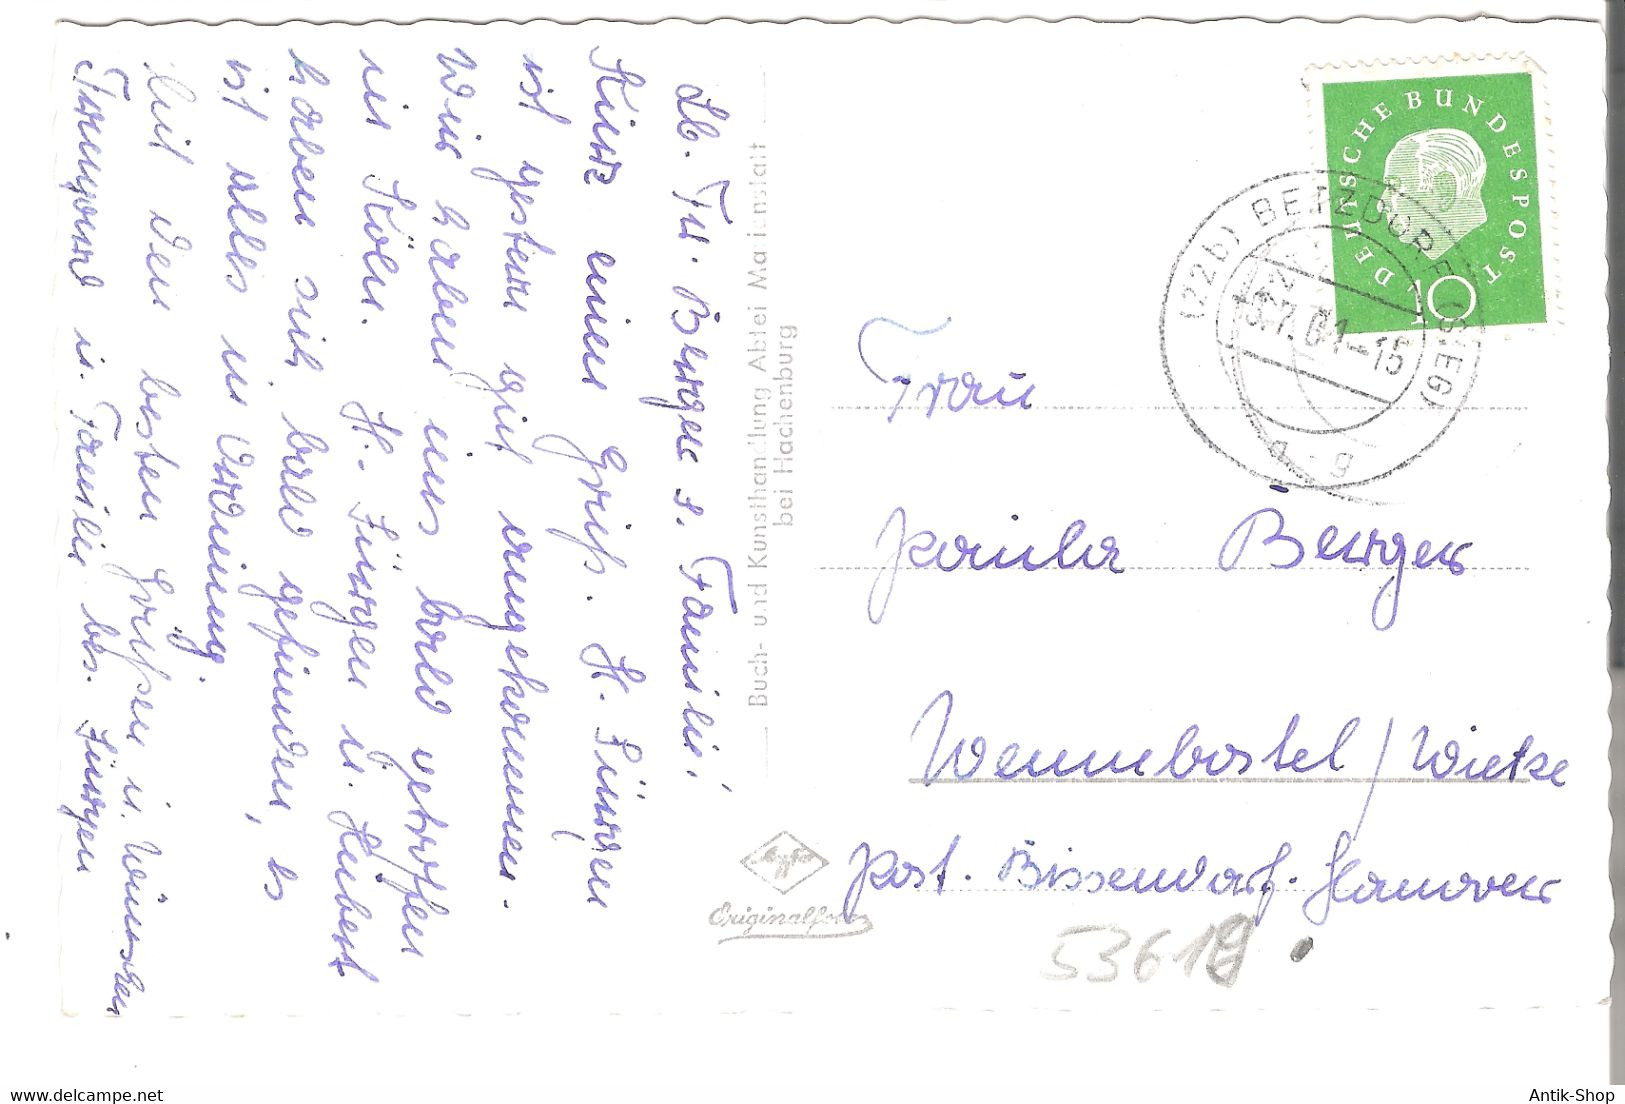 Lb. Fr. Berger s. Familie!
Kurz einen Gruß. H. Jürgen
ist gestern gut angekommen.
Wir haben uns bald getroffen
in Köln. H. Jürgen u. Hubert
haben sich bald gefunden, es
ist alles in Ordnung.
Mit den besten Grüßen u. Wünschen
u. Familie bes. Jürgen
Buch- und Kunsthandlung Abtei Marienstatt
bei Hachenburg
Originalfoto
DEUTSCHE BUNDESPOST
10
(22b) BETZDORF (SIEG)
5.7.61-15
a
g
Frau
Paula Berger
Wennebostel / Wietze
Post. Bissendorf. Hannover
53619
Antik-Shop
delcampe.net